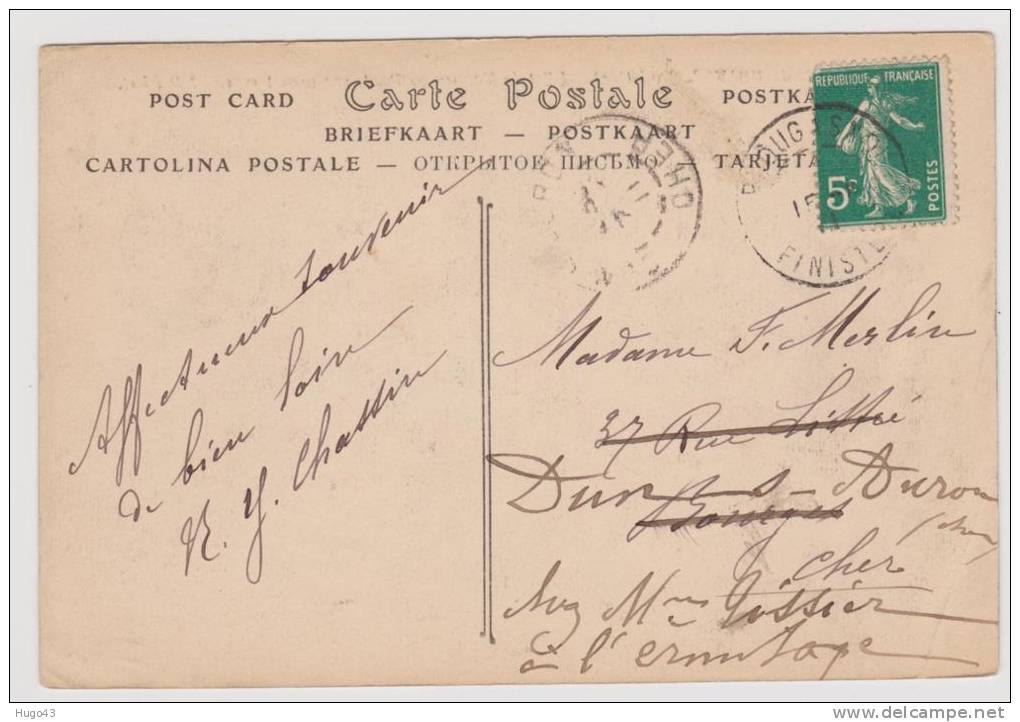 POST CARD Carte Postale POSTKA
BRIEFKAART — POSTKAART
CARTOLINA POSTALE — ОТКРЫТОЕ ПИСЬМО — TARJETA
REPUBLIQUE FRANÇAISE
5c
POSTES
FINISTE
CHER
Affectueux souvenir
de bien loin
Y. Chassin
Madame F. Merlin
37 Rue Littré
Dun-s-Auron
Bourges
(cher)
Cher
Mme Tissier
à l'ermitage
delcampe.net
Hugo43